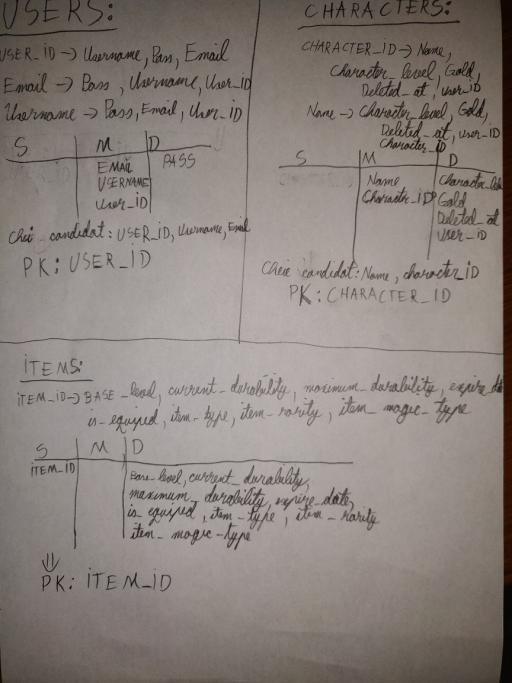 USERS:
USER_ID -> Username, Pass, Email
Email -> Pass, Username, User_iD
Username -> Pass, Email, User_iD
S M D
EMAIL PASS
USERNAME
User_iD
Chei candidat: USER_ID, Username, Email
PK: USER_ID
CHARACTERS:
CHARACTER_ID -> Name,
Character_level, Gold,
Deleted_at, user_ID
Name -> Character_level, Gold,
Deleted_at, user_ID
Character_ID
S M D
Name Character_
Character_ID Gold
Deleted_at
User_iD
Cheie candidat: Name, character_ID
PK: CHARACTER_ID
iTEMS:
iTEM_iD -> BASE_level, current_durability, maximum_durability, expire_date
is_equiped, item_type, item_rarity, item_magic_type
S M D
iTEM_iD Base_level, current_durability,
maximum_durability, expire_date,
is_equiped, item_type, item_rarity
item_magic_type
⇓
PK: iTEM_iD